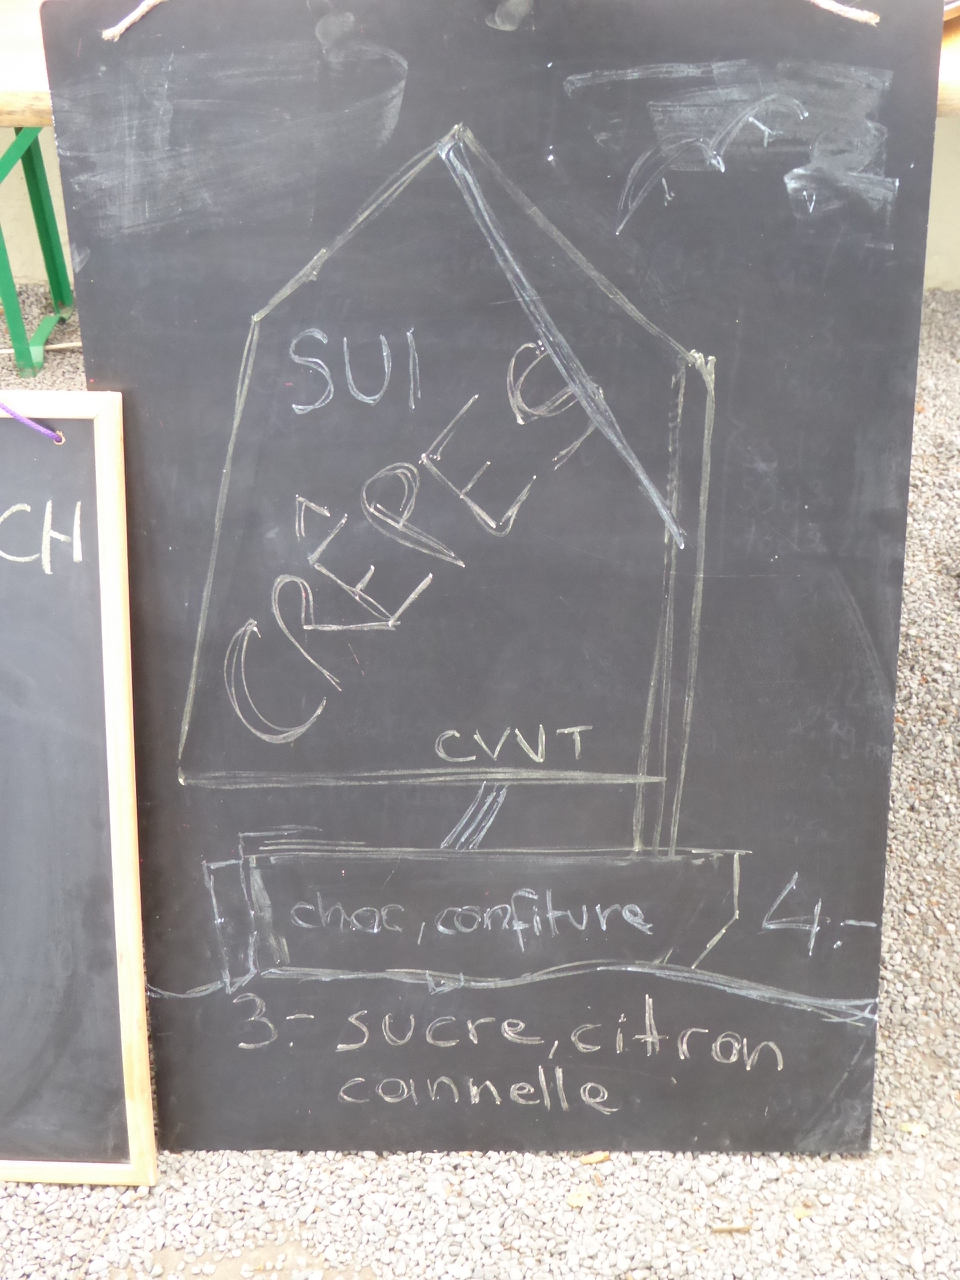 SUI
CRÊPES
CVVT
choc, confiture 4.-
3.- sucre, citron
cannelle
CH